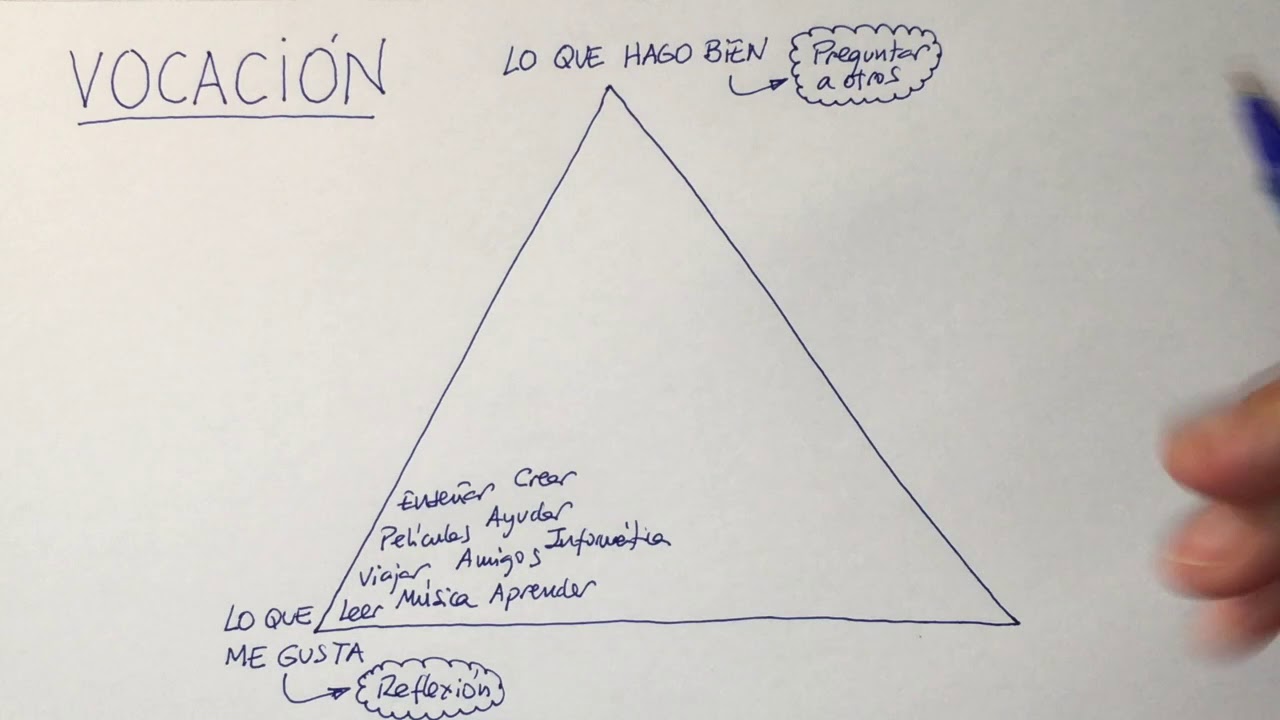 VOCACIÓN
LO QUE HAGO BIEN
Preguntar
a otros
Enseñar Crear
Películas Ayudar
Viajar Amigos Informática
Leer Música Aprender
LO QUE
ME GUSTA
Reflexión